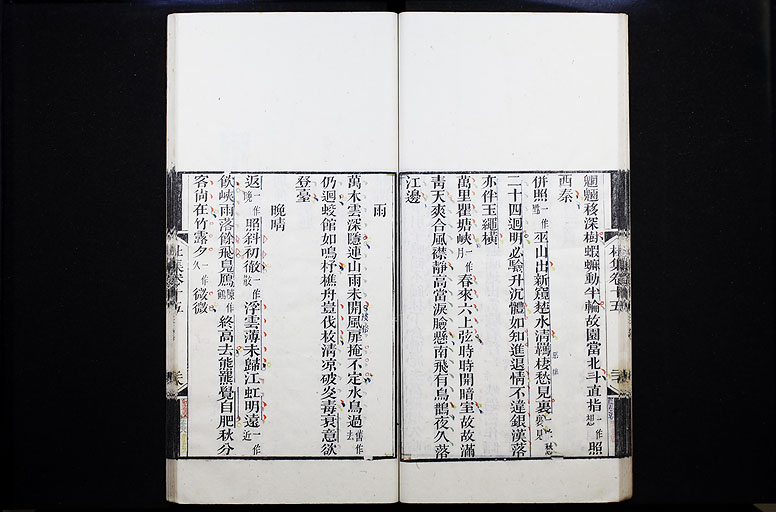 魍魎移深樹蝦蟆動半輪故園當北斗直指一作想照
西秦
併照一作點巫山出新窺楚水清羈棲愁見裏一云愁裏見
二十四迴明必驗升沉體如知進退情不違銀漢落
亦伴玉繩橫
萬里瞿塘峽一作月春來六上弦時時開暗室故故滿
靑天爽合風襟靜高當淚臉懸南飛有烏鵲夜久落
江邊
雨
萬木雲深隱連山雨未開風扉掩不定水鳥過一作去仍
仍迴蛟館如鳴杼樵舟豈伐枚淸凉破炎毒衰意欲
登臺
晚晴
返一作晚照斜初徹一作散浮雲薄未歸江虹明遠一作近
飮峽雨落餘飛鳧鴈終高去熊羆覺自肥秋分
客尙在竹露夕一作久微微
杜集卷十五
杜集卷十五